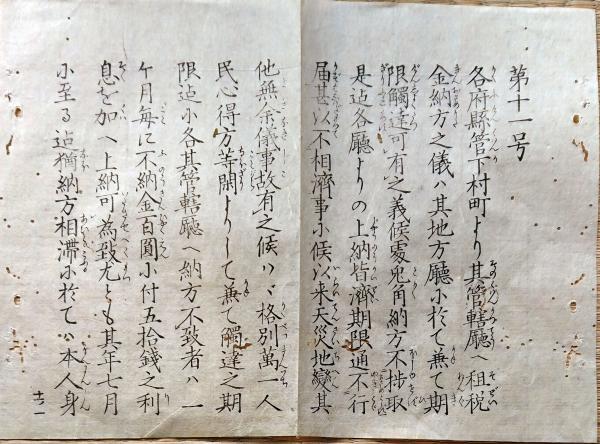 第十一号
各府縣管下村町より其管轄廳へ租税
金納方之儀ハ其地方廳小於て兼て期
限觸達可有之義候處兎角納方不捗取
是迠各廳よりの上納皆濟期限通不行
届甚以不相濟事小候以来天災地變其
他無余儀事故有之候ハヽ格別萬一人
民心得方等閑よりして兼て觸達之期
限迠小各其管轄廳へ納方不致者ハ一
ケ月毎に不納金百圓小付五拾錢之利
息を加へ上納可為致尤とも其年七月
小至る迠猶納方相滞小於てハ本人身